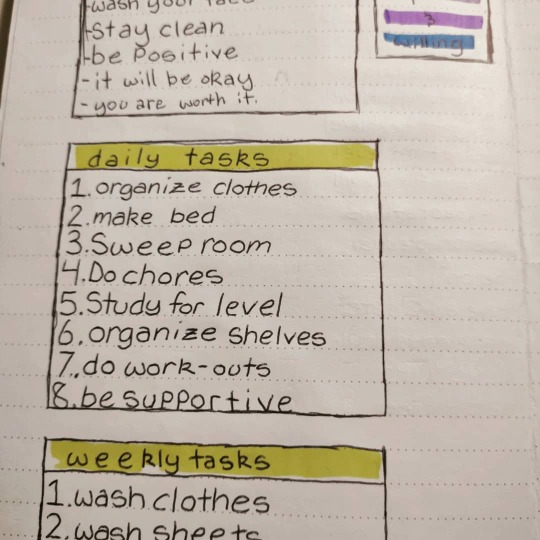 -wash your face
-Stay clean
-be Positive
-it will be okay
-you are worth it.
3
daily tasks
1.organize clothes
2.make bed
3.Sweep room
4.Do chores
5.Study for level
6.organize shelves
7.do work-outs
8.be supportive
weekly tasks
1.wash clothes
2.wash sheets